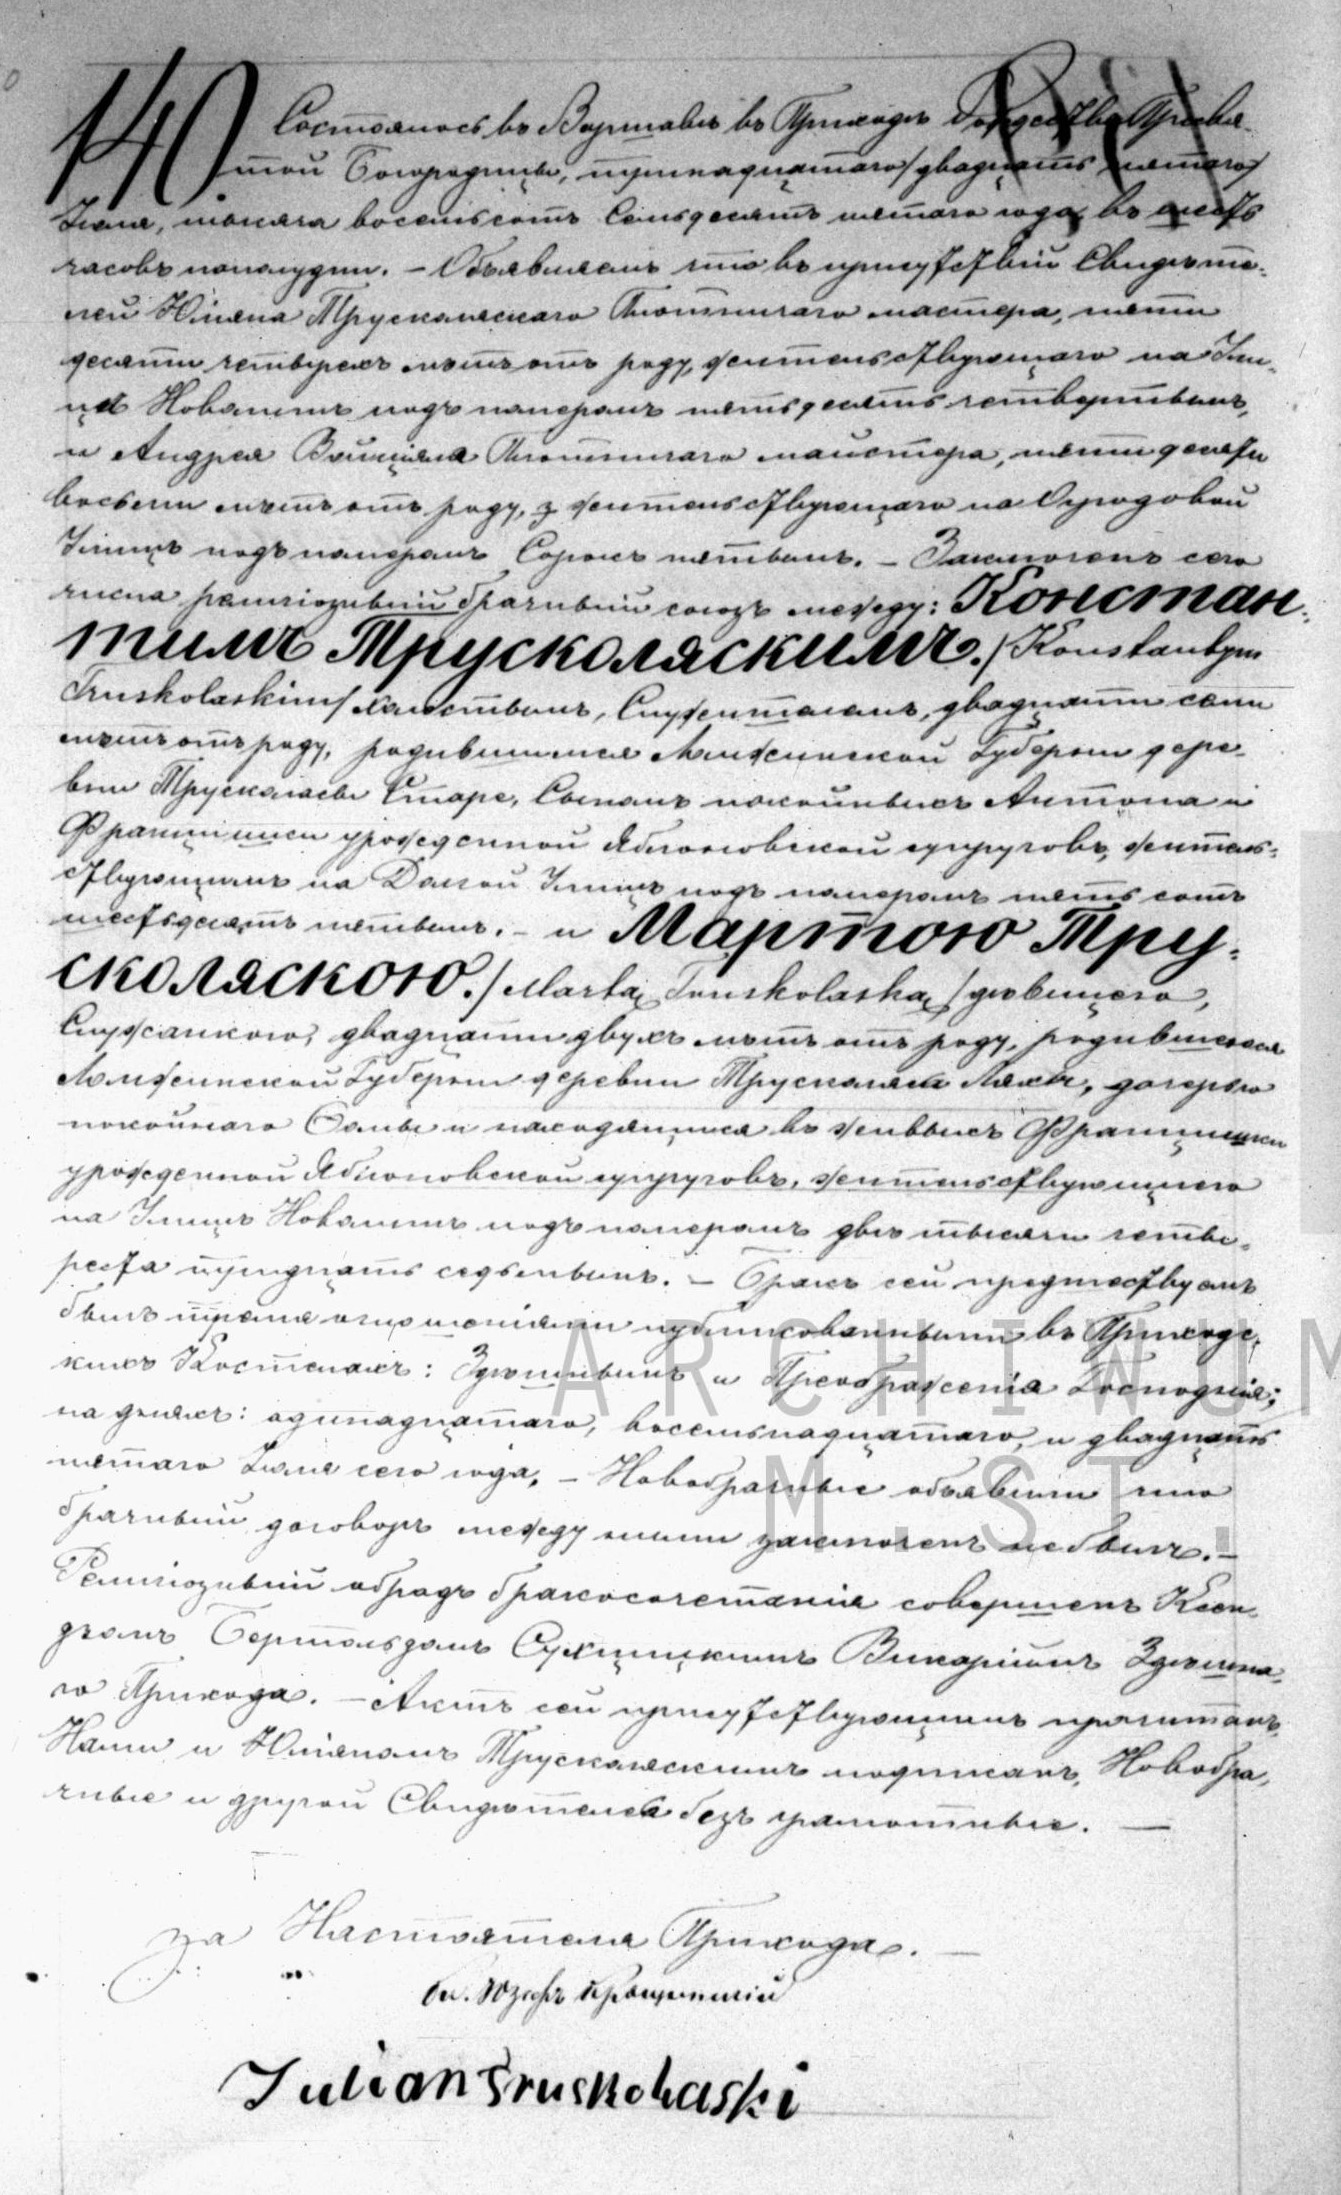 140
Состоялось въ Варшавѣ въ Приходѣ Рождества Пресвя-
той Богородицы, тринадцатаго/двадцать пятаго/
Іюля, тысяча восемьсотъ семьдесятъ пятаго года, въ шесть
часовъ пополудни. – Объявляемъ что въ присутствіи Свидѣте-
лей Юліяна Трусколяскаго Плотничаго мастера, пяти
десяти четырехъ лѣтъ отъ роду, жительствующаго на Ули-
цѣ Новолипѣ подъ номеромъ пятьдесятъ четвертымъ,
и Андрея Плотничаго мастера, пятидесяти
восьми лѣтъ отъ роду, жительствующаго на Огродовой
Улицѣ подъ номеромъ Сорокъ пятымъ. – Заключенъ сего
числа религіозный брачный союзъ между: Констан-
тимъ Трусколяскимъ./Konstantym
Truskolaskim/ холостымъ, Служителемъ, двадцати семи
лѣтъ отъ роду, родившимся Ломжинской Губерніи дере-
вни Трусколясы Старе, Сыномъ покойныхъ Антона и
Францишки урожденной Яблоновской супруговъ, житель-
ствующимъ на Дикой Улицѣ подъ номеромъ пять сотъ
шестьдесятъ пятымъ. – и Мартою Тру-
сколяскою./Martą Truskolaską/ дѣвицею,
Служанкою, двадцати двухъ лѣтъ отъ роду, родившеюся
Ломжинской Губерніи деревни Трусколясы Ляхы, дочерью
покойнаго Фомы и находящейся въ живыхъ Францишки
урожденной Яблоновской супруговъ, жительствующею
на Улицѣ Новолипѣ подъ номеромъ двѣ тысячи четы-
реста тридцать седьмымъ. – Бракъ сей предшествуемъ
былъ тремя оглашеніями публикованными въ Приходс-
кихъ Костелахъ: Здѣшнымъ и Преображенія Господня;
на дняхъ: одинадцатаго, восемьнадцатаго, и двадцать
пятаго Іюля сего года, – Новобрачные объявили что
брачный договоръ между ними заключенъ не былъ. –
Религіозный обрядъ бракосочетанія совершенъ Ксен-
дзомъ Бертольдомъ Викаріемъ Здѣшня-
го Прихода. – Актъ сей присутствующимъ прочитанъ,
Нами и Юліяномъ Трусколяскимъ подписанъ, Новобра-
чные и другой Свидѣтель безъ грамотные. –
за Настоятеля Прихода. –
Кс. Юзефъ
Julian Truskolaski
ARCHIWUM
M. ST.